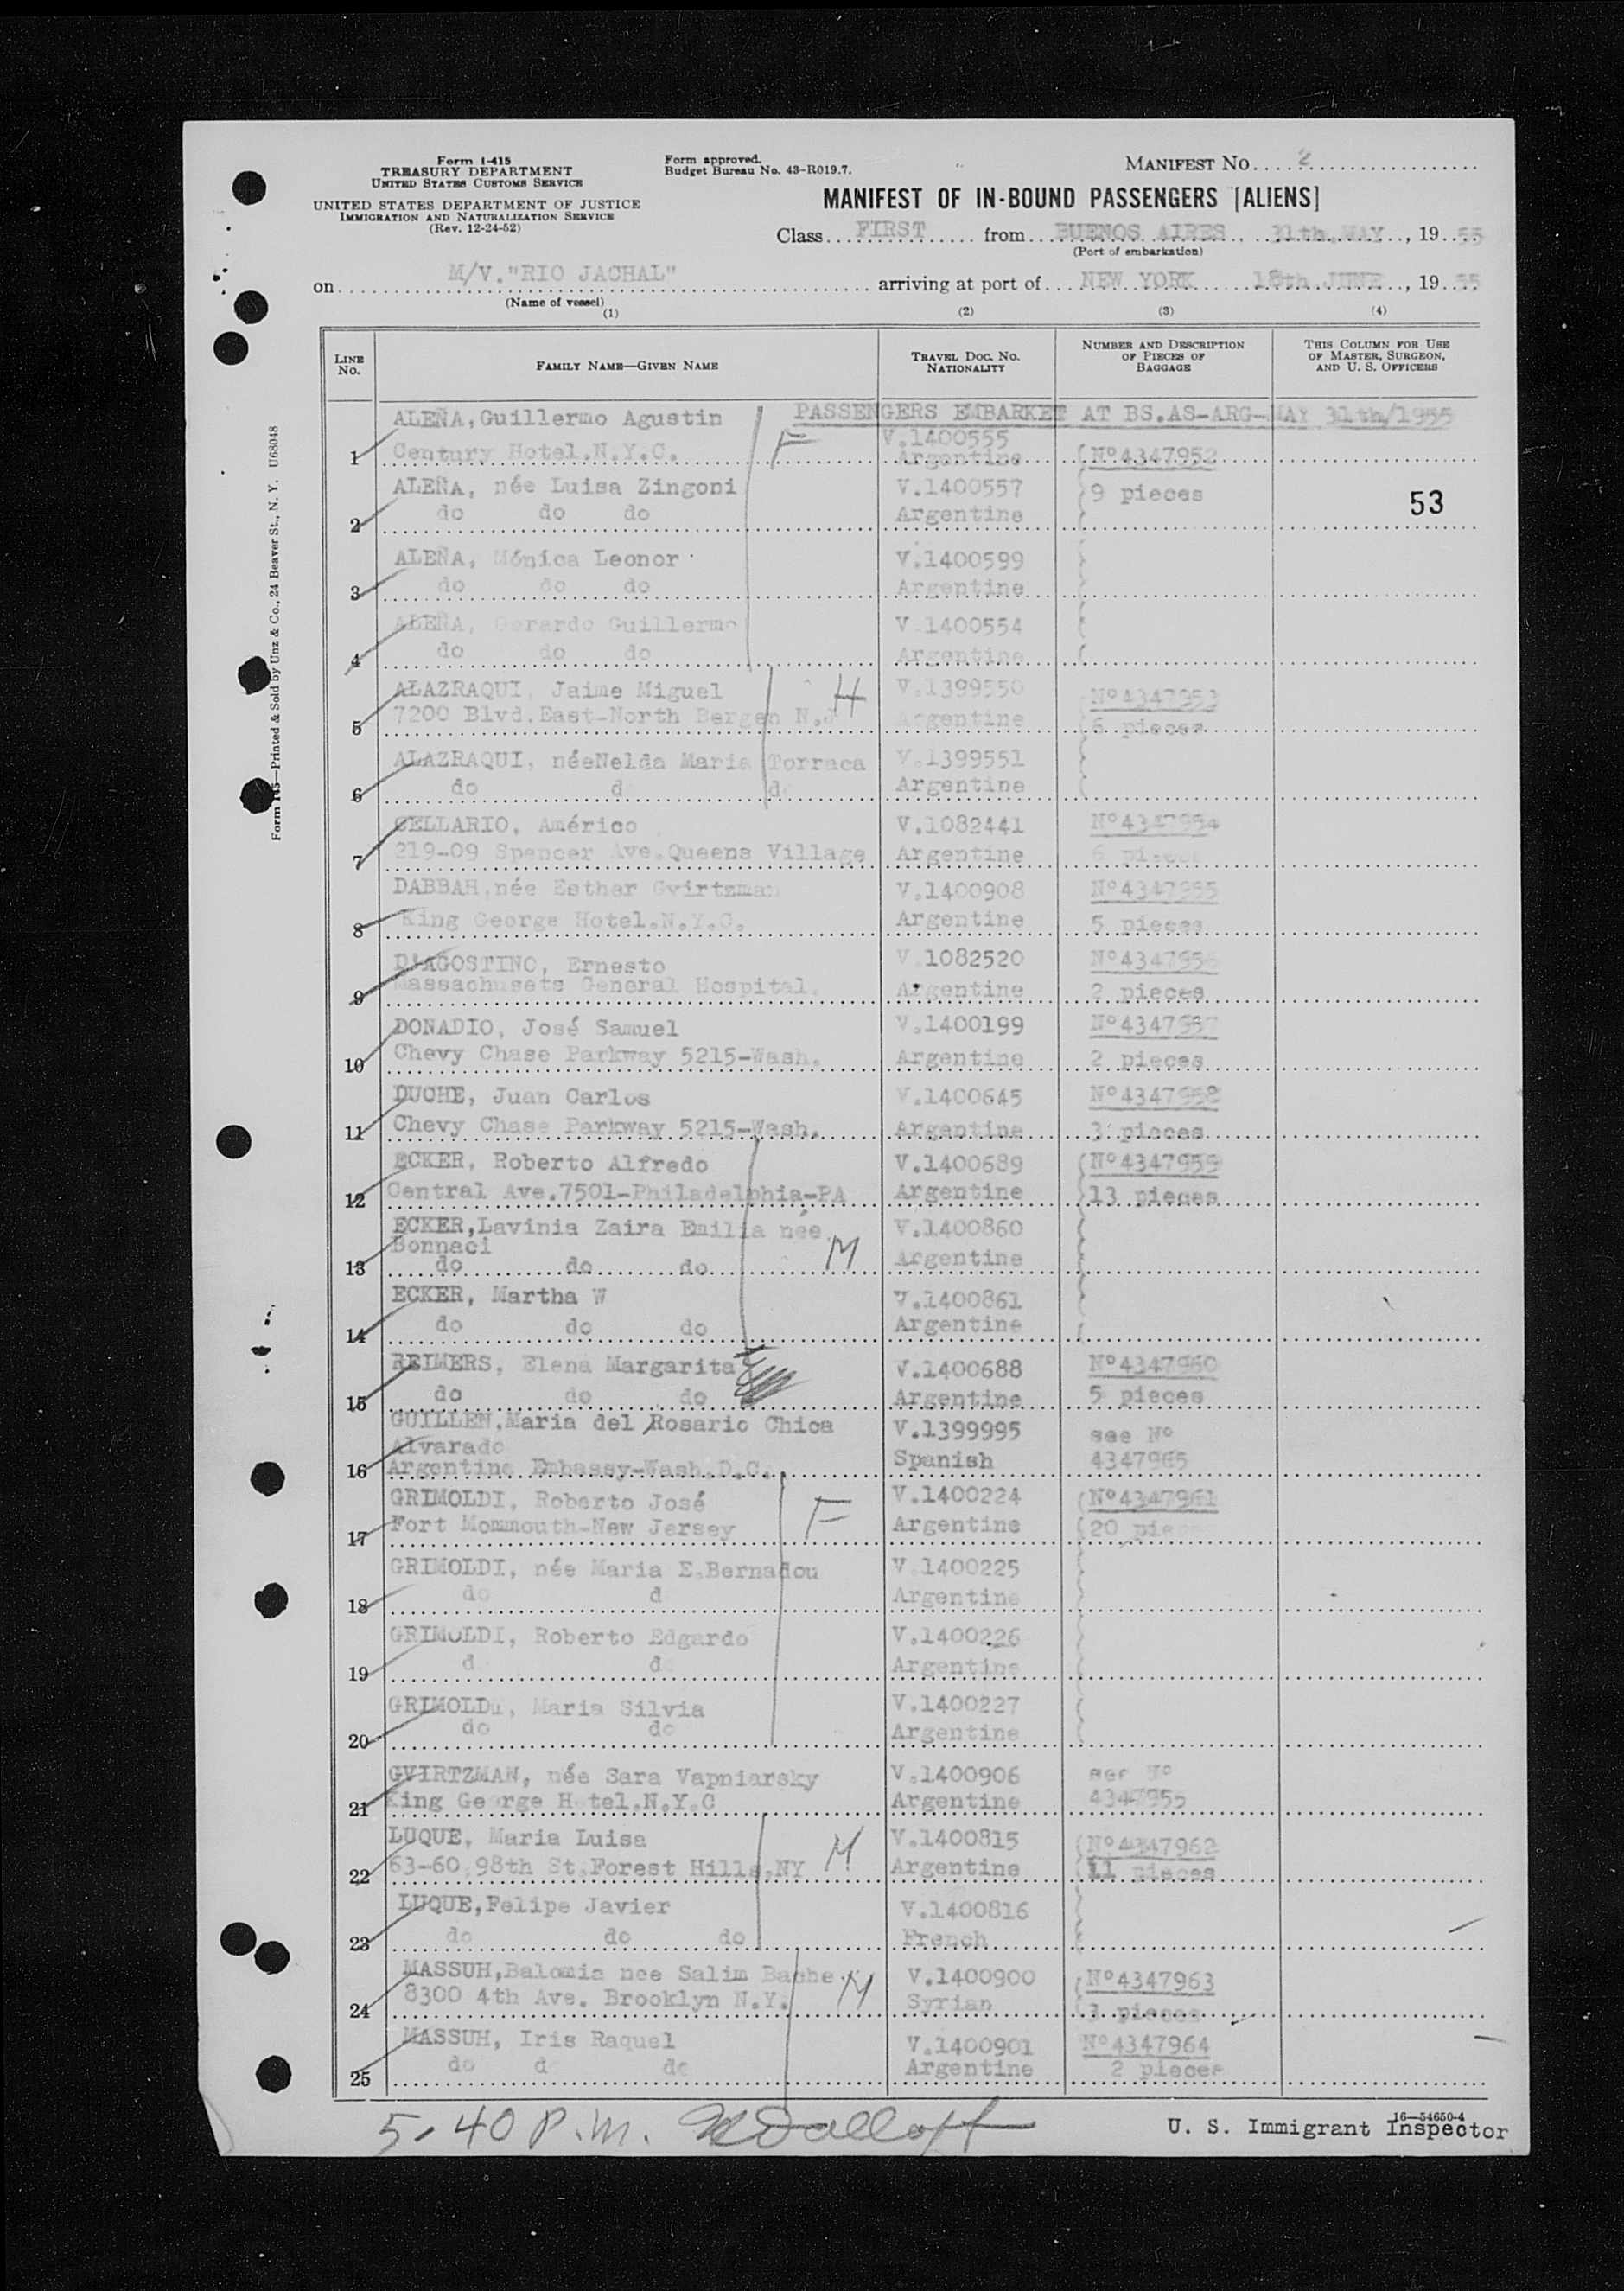 Form I-415
TREASURY DEPARTMENT
UNITED STATES CUSTOMS SERVICE
UNITED STATES DEPARTMENT OF JUSTICE
IMMIGRATION AND NATURALIZATION SERVICE
(Rev. 12-24-52)
Form approved.
Budget Bureau No. 43-R019.7.
MANIFEST NO.... 2
MANIFEST OF IN-BOUND PASSENGERS [ALIENS]
Class FIRST from BUENOS AIRES, 31th.MAY, 19 55
(Port of embarkation)
on M/V."RIO JACHAL" arriving at port of NEW YORK 18th JUNE, 19 55
(Name of vessel)
(1) (2) (3) (4)
LINE NO. FAMILY NAME—GIVEN NAME TRAVEL DOC. NO. NATIONALITY NUMBER AND DESCRIPTION OF PIECES OF BAGGAGE THIS COLUMN FOR USE OF MASTER, SURGEON, AND U. S. OFFICERS
PASSENGERS EMBARKET AT BS.AS-ARG-MAY 31th/1955
ALEÑA,Guillermo Agustin V.1400555
1 Century Hotel.N.Y.C. F Argentine Nº4347952
ALEÑA, née Luisa Zingoni V.1400557 9 pieces 53
2 do do do Argentine
ALEÑA, Mónica Leonor V.1400599
3 do do do Argentine
ALEÑA, Gerardo Guillermo V.1400554
4 do do do Argentine
ALAZRAQUI, Jaime Miguel H V.1399550 Nº4347953
5 7200 Blvd.East-North Bergen N.J Argentine 6 pieces
ALAZRAQUI, néeNelda Maria Torraca V.1399551
6 do d d Argentine
CELLARIO, Américo V.1082441 Nº4347954
7 219-09 Spencer Ave.Queens Village Argentine 6 pieces
DABBAH,née Esther Gvirtzman V.1400908 Nº4347955
8 King George Hotel.N.Y.C. Argentine 5 pieces
D'AGOSTINO, Ernesto V.1082520 Nº4347956
9 Massachusets General Hospital. Argentine 2 pieces
DONADIO, José Samuel V.1400199 Nº4347957
10 Chevy Chase Parkway 5215-Wash. Argentine 2 pieces
DUCHE, Juan Carlos V.1400645 Nº4347958
11 Chevy Chase Parkway 5215-Wash. Argentine 3 pieces
ECKER, Roberto Alfredo V.1400689 Nº4347959
12 Central Ave.7501-Philadelphia-PA Argentine 13 pieces
ECKER,Lavinia Zaira Emilia née V.1400860
Bonnaci M
13 do do do Argentine
ECKER, Martha W V.1400861
14 do do do Argentine
REIMERS, Elena Margarita V.1400688 Nº4347960
15 do do do Argentine 5 pieces
GUILLEN,Maria del Rosario Chica V.1399995 see Nº
Alvarado
16 Argentine Embassy-Wash.D.C. Spanish 4347965
GRIMOLDI, Roberto José V.1400224 Nº4347961
17 Fort Monmouth-New Jersey F Argentine 20 pie
GRIMOLDI, née Maria E.Bernadou V.1400225
18 do d Argentine
GRIMOLDI, Roberto Edgardo V.1400226
19 d d Argentine
GRIMOLDI, Maria Silvia V.1400227
20 do do Argentine
GVIRTZMAN, née Sara Vapniarsky V.1400906 see Nº
21 King George Hotel.N.Y.C Argentine 4347955
LUQUE, Maria Luisa V.1400815 Nº4347962
22 63-60,98th St.Forest Hills,NY M Argentine 11 pieces
LUQUE,Felipe Javier V.1400816
23 do do do French
MASSUH,Balomia nee Salim Bache V.1400900 Nº4347963
24 8300 4th Ave. Brooklyn N.Y. M Syrian 3 pieces
MASSUH, Iris Raquel V.1400901 Nº4347964
25 do d do Argentine 2 pieces
5.40 P.M.
16—54650-4
U. S. Immigrant Inspector
Form 145—Printed & Sold by Unz & Co., 24 Beaver St., N. Y. U68048